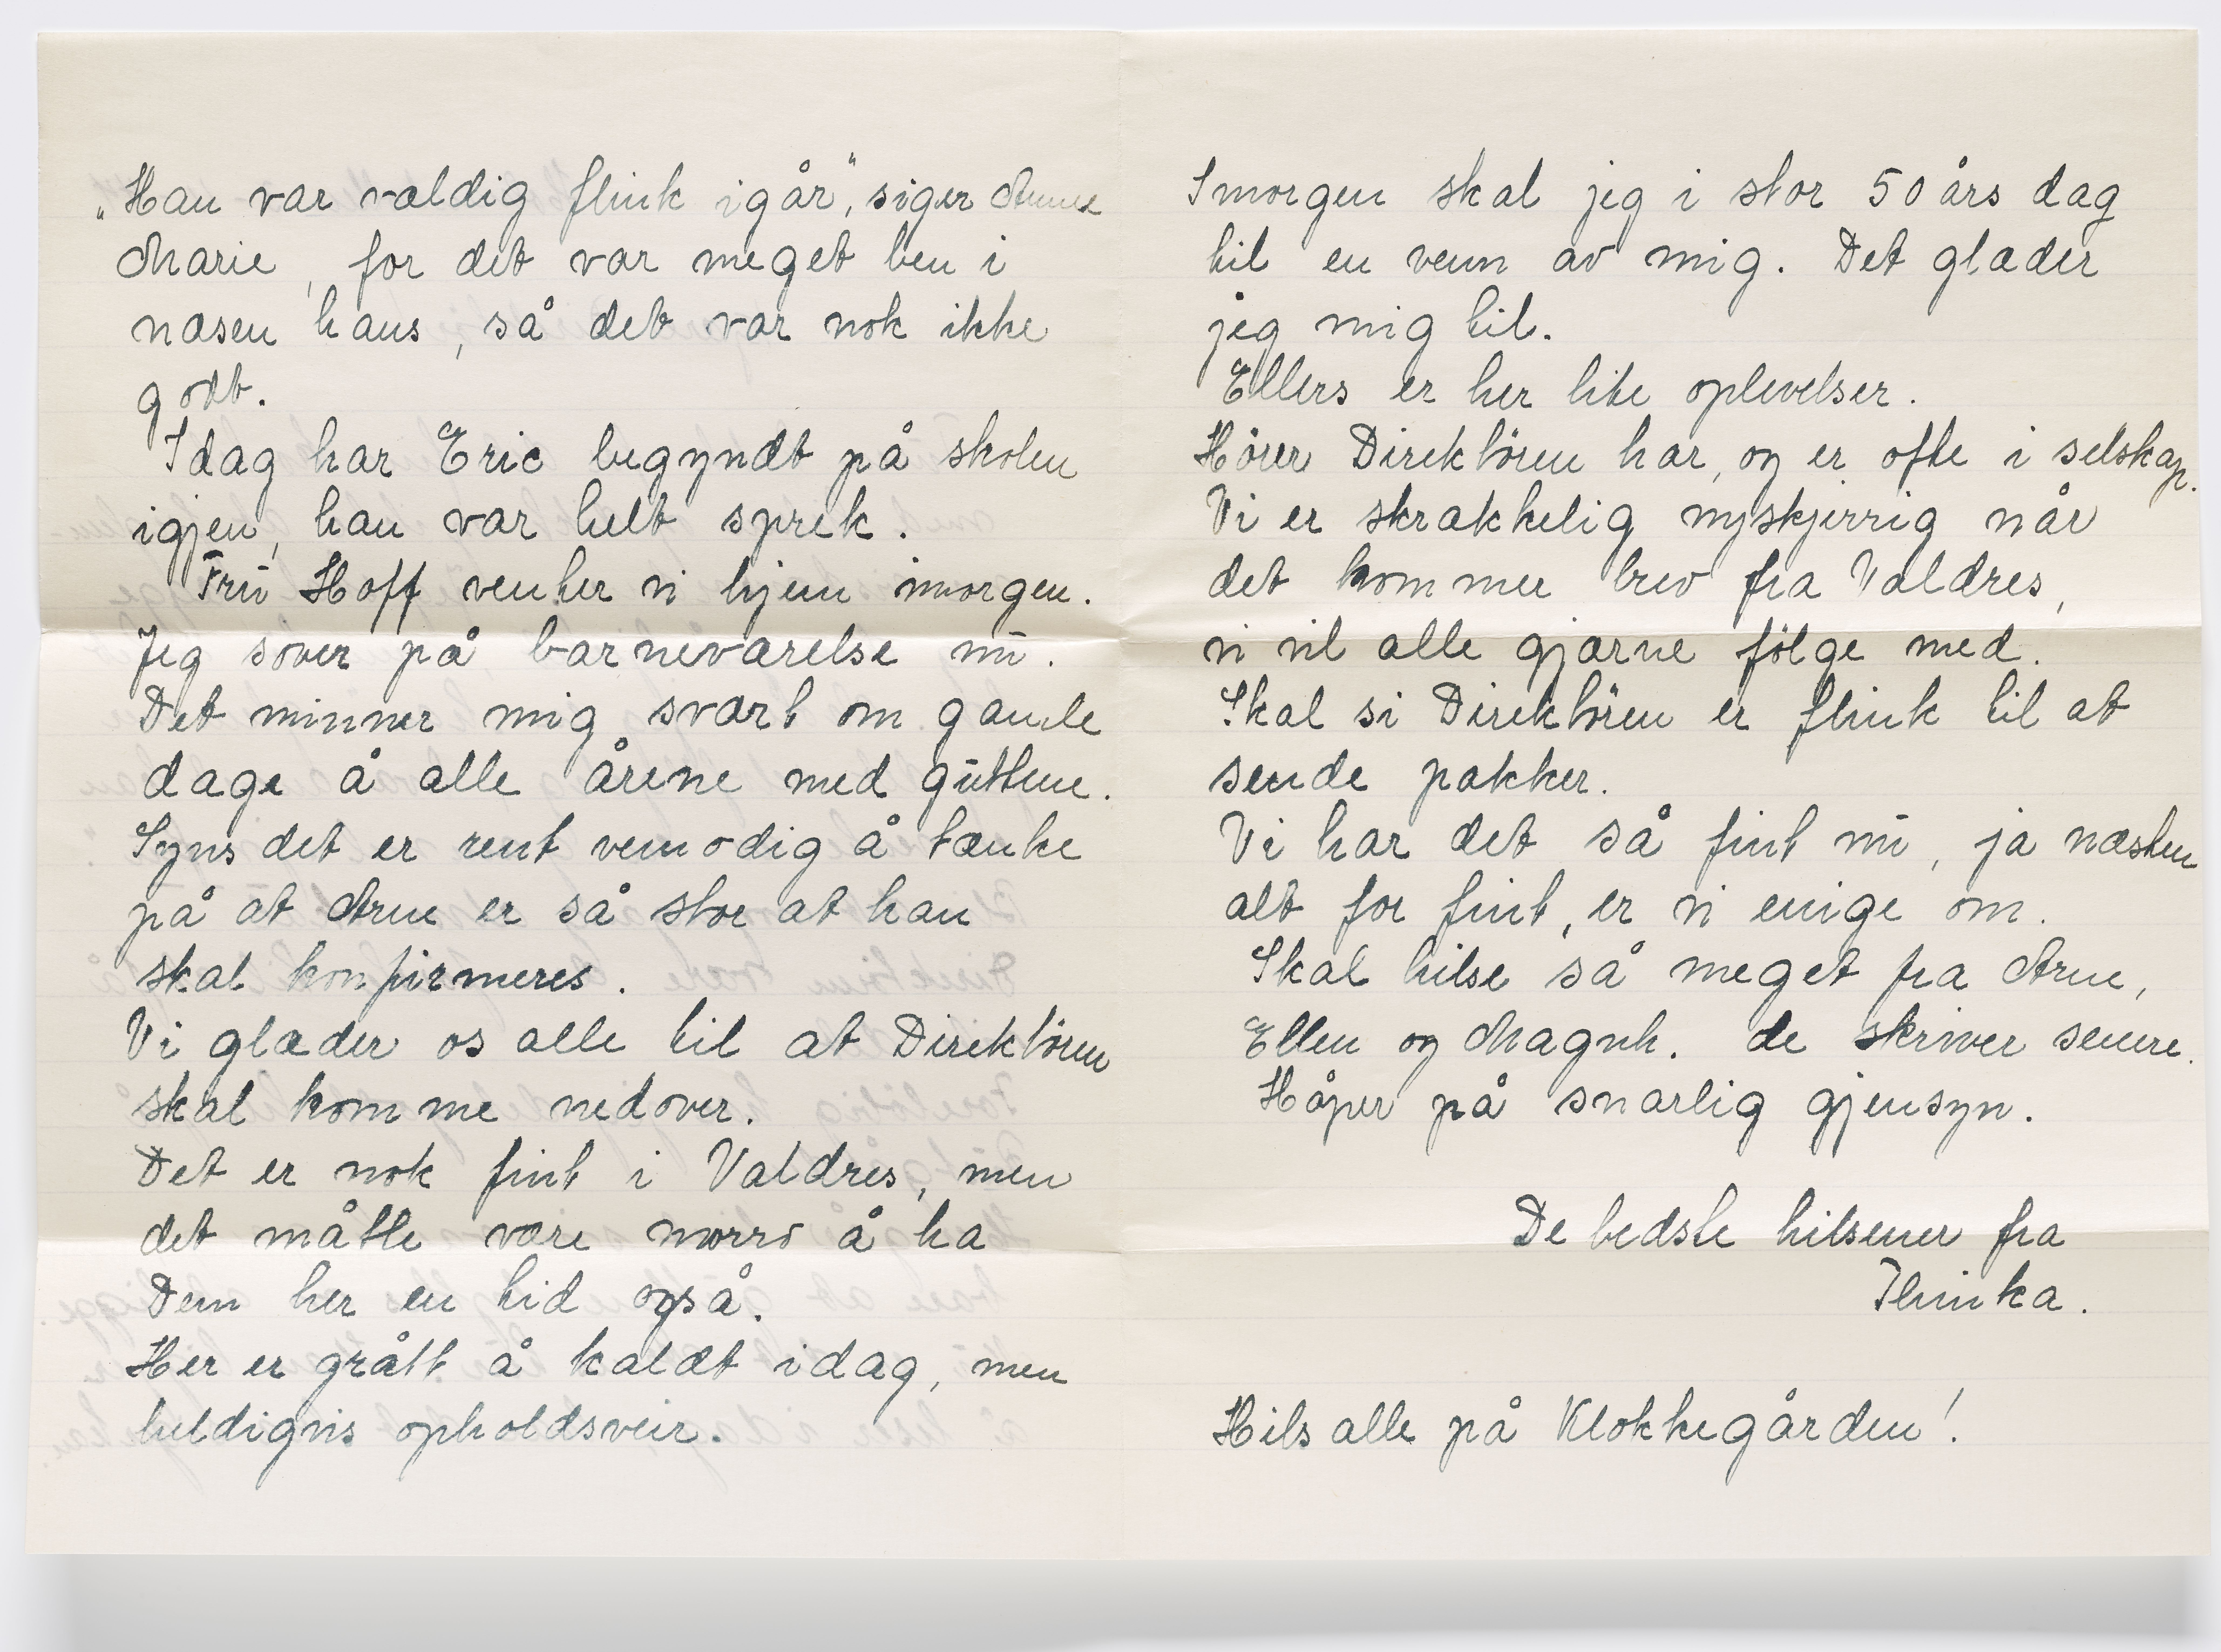 "Han var vældig flink igår", siger Anne
Marie, for det var meget ben i
næsen hans, så det var nok ikke
godt.
Idag har Eric begyndt på skolen
igjen, han var helt sprek.
Fru Hoff venter vi hjem imorgen.
Jeg sover på barneværelse nu.
Det minner mig svært om gamle
dage å alle årene med guttene.
Syns det er rent vemodig å tænke
på at Arne er så stor at han
skal konfirmeres.
Vi glæder os alle til at Direktören
skal komme nedover.
Det er nok fint i Valdres, men
det måtte være morro å ha
Dem her en tid også.
Her er grått å kaldt idag, men
heldigvis opholdsveir.
Imorgen skal jeg i stor 50 års dag
til en venn av mig. Det glæder
jeg mig til.
Ellers er her lite oplevelser.
Hörer Direktören har, og er ofte i selskap.
Vi er skrækkelig nyskjerrig når
det kommer brev fra Valdres,
vi vil alle gjærne fölge med.
Skal si Direktören er flink til at
sende pakker.
Vi har det så fint nu, ja næsten
alt for fint, er vi enige om.
Skal hilse så meget fra Arne,
Ellen og Magnh. de skriver senere.
Håper på snarlig gjensyn.
De bedste hilsener fra
Thinka.
Hils alle på Klokkegården!